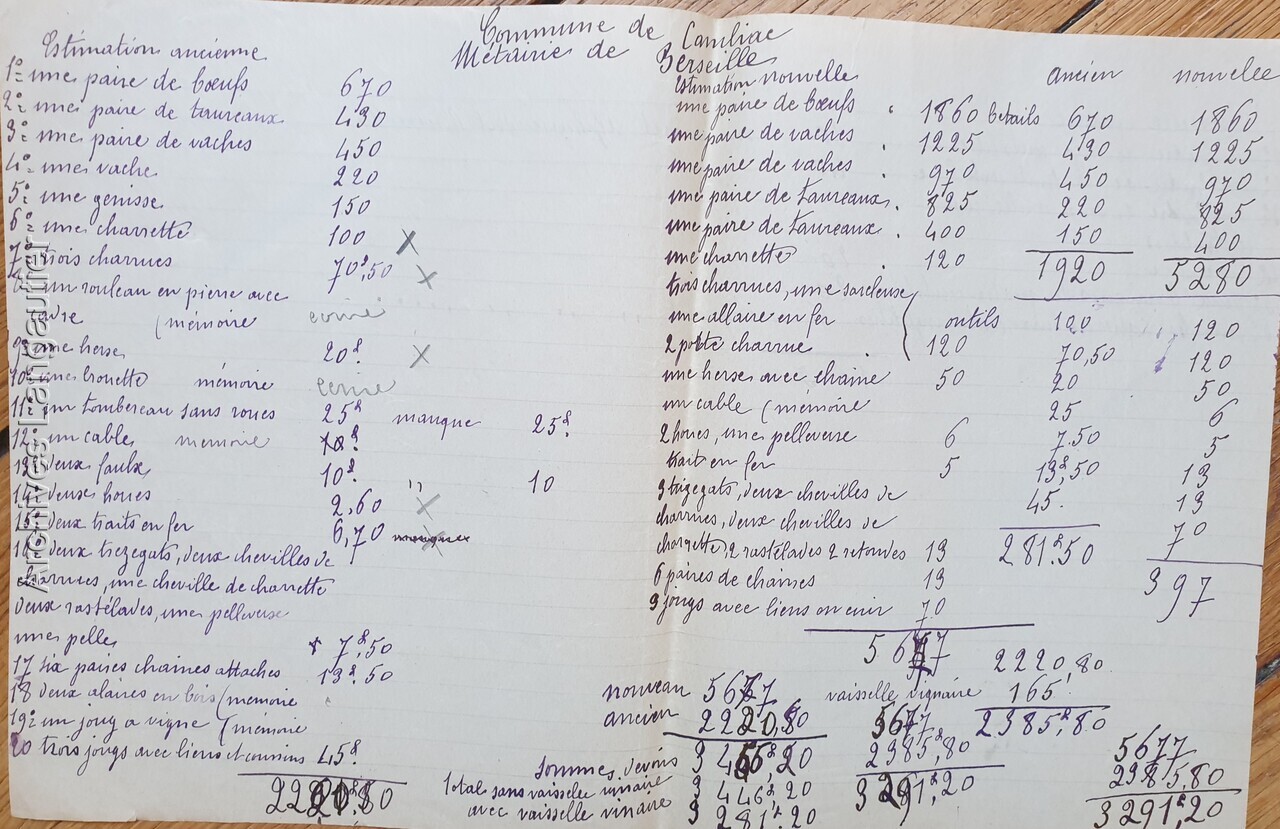 Commune de Camiliac
Métairie de Berseille
Estimation ancienne
1° une paire de bœufs 670
2° une paire de taureaux 430
3° une paire de vaches 450
4° une vache 220
5° une genisse 150
6° une charrette 100 X
7° trois charrues 70f,50 X
8 un rouleau en pierre avec
(mémoire
9° une herse 20f. X
10° une brouette mémoire
11° un tombereau sans roues 25f manque 25f.
12° un cable memoire
13° deux faulx 10f. " 10
14° deux houes 2,60 X
15° deux traits en fer 6,70
16° deux trezegats, deux chevilles de
charrues, une cheville de charrette
deux rastélades, une pelleverse
une pelle 7f,50
17 six paires chaines attaches 13f.50
18 deux alaires en bois (memoire
19° un joug a vigne (mémoire
20 trois jougs avec liens et coussins 45f.
Estimation nouvelle
une paire de bœufs 1860
une paire de vaches 1225
une paire de vaches 970
une paire de taureaux 825
une paire de taureaux 400
une charrette 120
trois charrues, une sarcleuse
une allaire en fer
2 charrue 120
une herse avec chaine 50
un cable (mémoire
2 houes, une pelleverse 6
trait en fer 5
3 trezegats, deux chevilles de
charrues, deux chevilles de
charrette, 2 rastélades 2 retondes 13
6 paires de chaines 13
3 jougs avec liens en cuir 70
5677
ancien nouvelle
betails 670 1860
430 1225
450 970
220 825
150 400
1920 5280
outils 100 120
70,50 120
20 50
25 6
7.50 5
13f,50 13
45. 13
70
281f.50 397
2220,80
vaisselle vignaire 165
2385f,80
nouveau 5677
ancien 2220,80
sommes devoir 3456f,20
total sans vaisselle vinaire 3446f.20
avec vaisselle vinaire 3281f.20
5677
2385f,80
3291,20
5677
2385,80
3291f,20
Archives Langautier